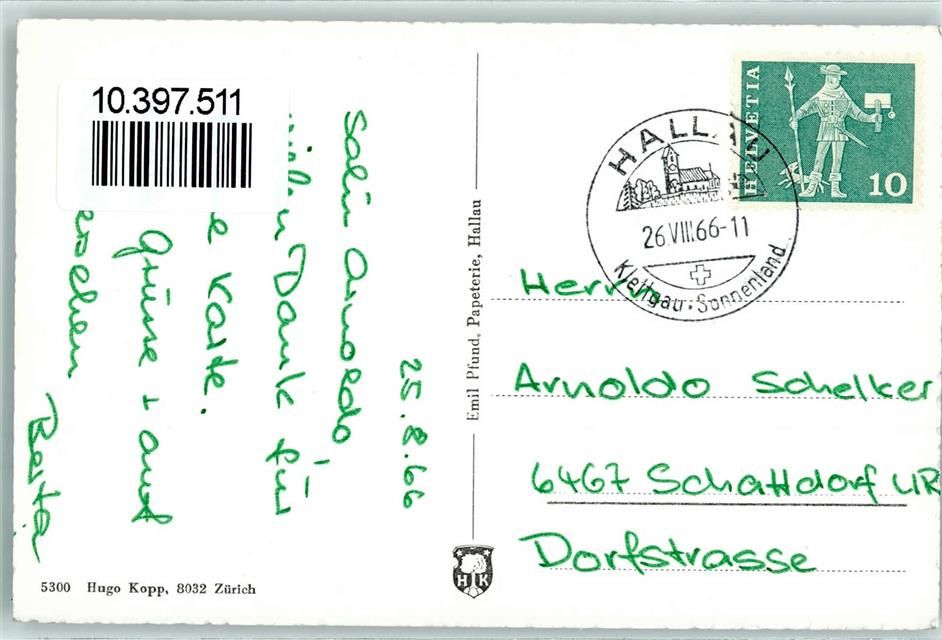 10.397.511
25.8.66
Salü Arnoldo,
vielen Dank für
e Karte.
Grüsse + auf
Beata
5300 Hugo Kopp, 8032 Zürich
Emil Pfund, Papeterie, Hallau
H K
HALLAU
26.VIII.66-11
Klettgau · Sonnenland
HELVETIA
10
Herrn
Arnoldo Schelker
6467 Schattdorf UR
Dorfstrasse